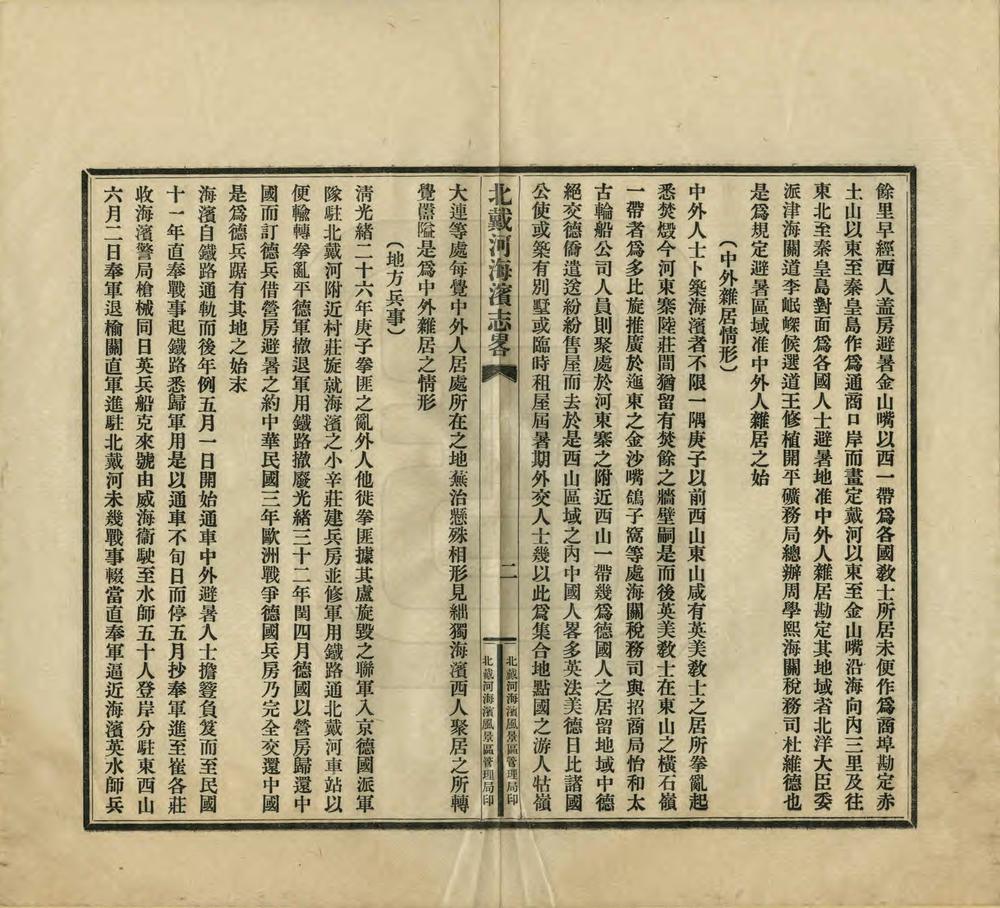 餘里早經西人盖房避暑金山嘴以西一帶爲各國教士所居未便作爲商埠勘定赤
土山以東至秦皇島作爲通商口岸而畫定戴河以東至金山嘴沿海向內三里及往
東北至秦皇島對面爲各國人士避暑地准中外人雜居勘定其地域者北洋大臣委
派津海關道李岷嶸候選道王修植開平礦務局總辦周學熙海關稅務司杜維德也
是爲規定避暑區域准中外人雜居之始
（中外雜居情形）
中外人士卜築海濱者不限一隅庚子以前西山東山咸有英美教士之居所拳亂起
悉焚燬今河東寨陸莊間猶留有焚餘之牆壁嗣是而後英美教士在東山之橫石嶺
一帶者爲多比旋推廣於迤東之金沙嘴鴿子窩等處海關稅務司與招商局怡和太
古輪船公司人員則聚處於河東寨之附近西山一帶幾爲德國人之居留地域中德
絕交德僑遣送紛紛售屋而去於是西山區域之內中國人畧多英法美德日比諸國
公使或築有別墅或臨時租屋屆暑期外交人士幾以此爲集合地點國之游人牯嶺
北戴河海濱志畧
二
北戴河海濱風景區管理局印
北戴河海濱風景區管理局印
大連等處每覺中外人居處所在之地蕪治懸殊相形見絀獨海濱西人聚居之所轉
覺囂隘是爲中外雜居之情形
（地方兵事）
淸光緒二十六年庚子拳匪之亂外人他徙拳匪據其盧旋毀之聯軍入京德國派軍
隊駐北戴河附近村莊旋就海濱之小辛莊建兵房並修軍用鐵路通北戴河車站以
便輸轉拳亂平德軍撤退軍用鐵路撤廢光緒三十二年閏四月德國以營房歸還中
國而訂德兵借營房避暑之約中華民國三年歐洲戰爭德國兵房乃完全交還中國
是爲德兵踞有其地之始末
海濱自鐵路通軌而後年例五月一日開始通車中外避暑人士擔簦負笈而至民國
十一年直奉戰事起鐵路悉歸軍用是以通車不旬日而停五月抄奉軍進至崔各莊
收海濱警局槍械同日英兵船克來號由威海衞駛至水師五十人登岸分駐東西山
六月二日奉軍退榆關直軍進駐北戴河未幾戰事輟當直奉軍逼近海濱英水師兵